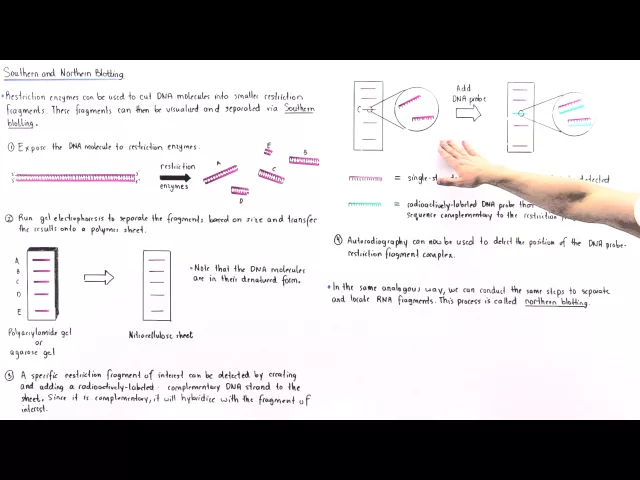 Southern and Northern Blotting
• Restriction enzymes can be used to cut DNA molecules into smaller restriction
fragments. These fragments can then be visualized and separated via Southern
blotting.
① Expose the DNA molecule to restriction enzymes.
restriction
enzymes
A
E
B
C
D
② Run gel electrophoresis to separate the fragments based on size and transfer
the results onto a polymer sheet.
A
B
C
D
E
• Note that the DNA molecules
are in their denatured form.
Polyacrylamide gel
or
agarose gel
Nitrocellulose sheet
③ A specific restriction fragment of interest can be detected by creating
and adding a radioactively-labeled complementary DNA strand to the
sheet. Since it is complementary, it will hybridize with the fragment of
interest.
C
Add
DNA probe
= detected
= radioactively-labeled DNA probe
sequence complementary to the restriction
④ Autoradiography can now be used to detect the position of the DNA probe-
restriction fragment complex.
• In the same analogous way, we can conduct the same steps to separate
and locate RNA fragments. This process is called northern blotting.